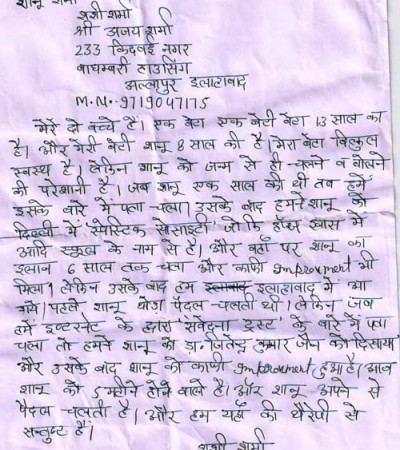 शानू शर्मा
शशी शर्मा
श्री अजय शर्मा
233 किदवई नगर
बाघम्बरी हाउसिंग
अल्लापुर इलाहाबाद
M.N.-9719047175
मेरे दो बच्चे हैं। एक बेटा एक बेटी बेटा 13 साल का
है। और मेरी बेटी शानू 8 साल की है। मेरा बेटा बिल्कुल
स्वस्थ है। लेकिन शानू को जन्म से ही चलने व बोलने
की परेशानी है। जब शानू एक साल की थी तब हमें
इसके बारे में पता चला। उसके बाद हमने शानू को
दिल्ली में स्पेस्टिक सोसाइटी जोकि हौज खास में
आदि स्कूल के नाम से है। और वहाँ पर शानू का
इलाज 6 साल तक चला और काफी Improvment भी
मिला। लेकिन उसके बाद हम इलाहाबाद में आ
गये। पहले शानू थोड़ा पैदल चलती थी। लेकिन जब
हमें इण्टरनेट के द्वारा संवेदना ट्रस्ट के बारे में पता
चला तो हमने शानू को डा. जितेन्द्र कुमार जैन को दिखाया
और उसके बाद शानू को काफी Improvment हुआ है। आज
शानू को 5 महीने होने वाले है। और शानू अपने से
पैदल चलती है। और हम यहाँ की थैरेपी से
सन्तुष्ट हैं।
शशी शर्मा